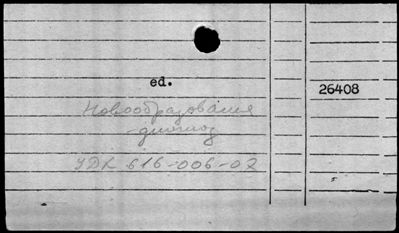 ed.
26408
Новообразования
-диагноз
УДК 616-006-02